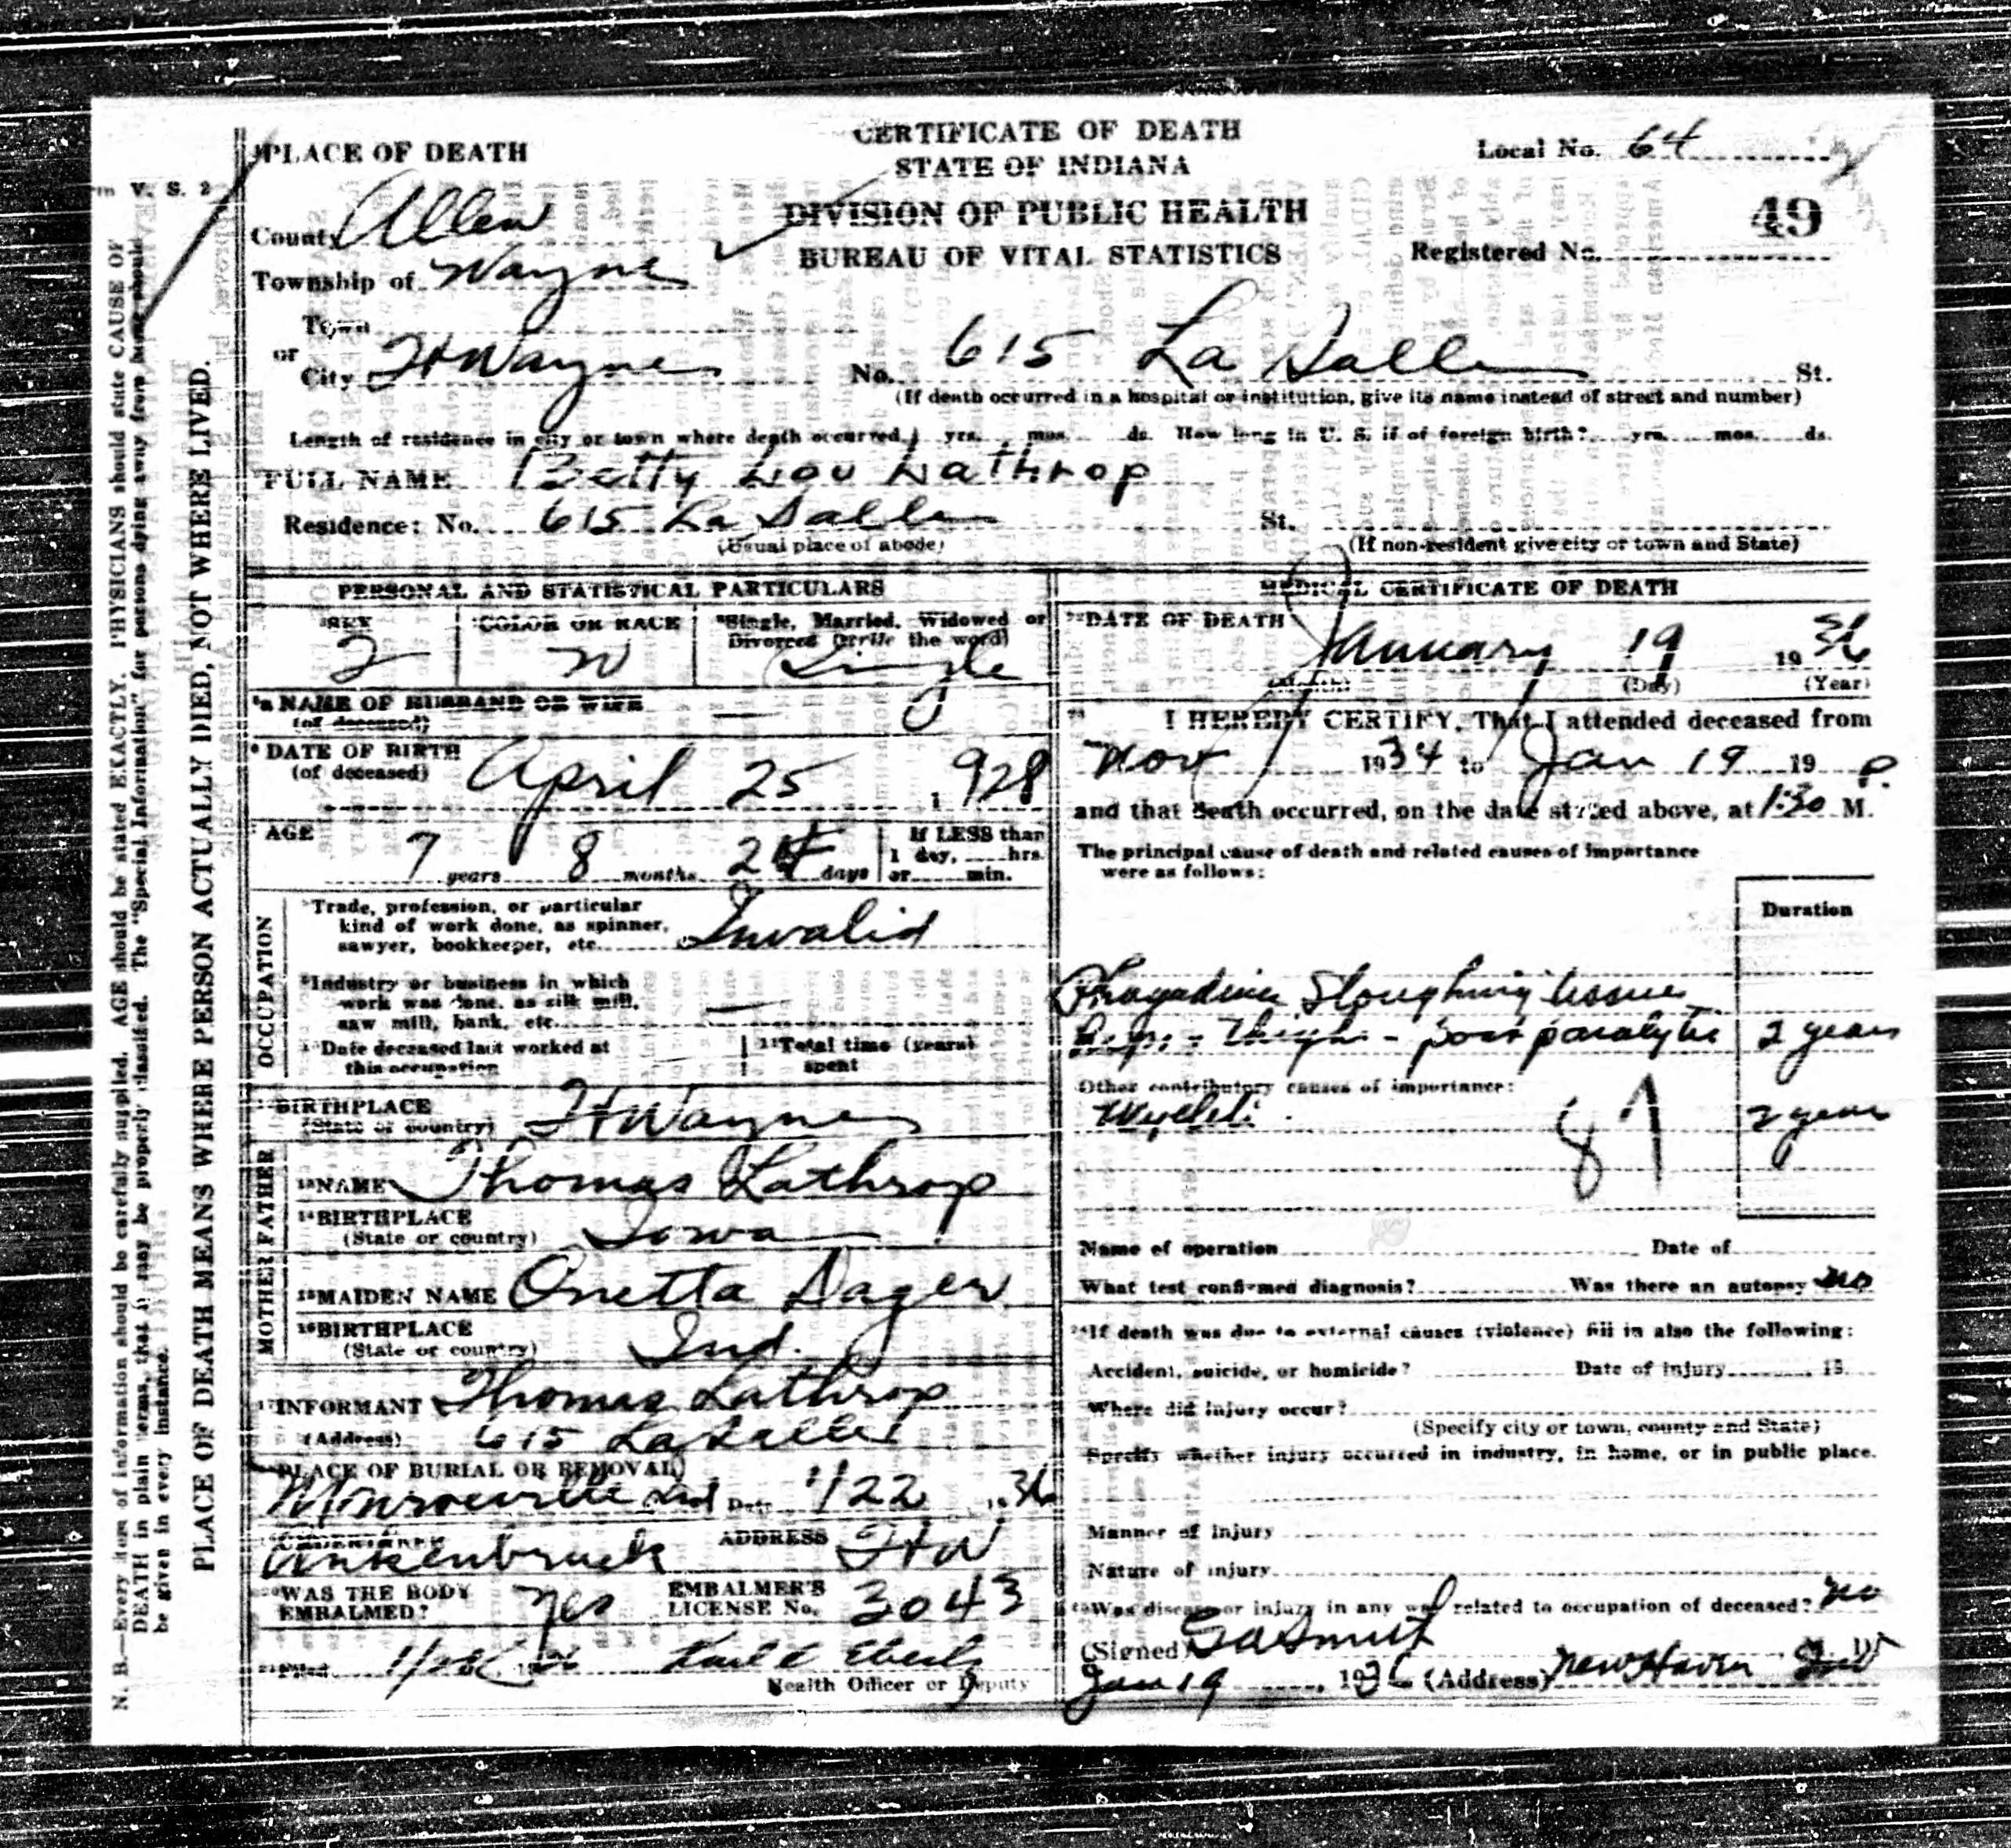 CERTIFICATE OF DEATH
STATE OF INDIANA
DIVISION OF PUBLIC HEALTH
BUREAU OF VITAL STATISTICS
Local No. 64
49
Registered No.
V. S. 2
PLACE OF DEATH
County Allen
Township of Wayne
Town
or
City Ft Wayne No. 615 La Salle St.
(If death occurred in a hospital or institution, give its name instead of street and number)
Length of residence in city or town where death occurred yrs. mos. ds. How long in U. S. if of foreign birth? yrs. mos. ds.
FULL NAME Betty Lou Lathrop
Residence: No. 615 La Salle St.
(Usual place of abode) (If non-resident give city or town and State)
PERSONAL AND STATISTICAL PARTICULARS
SEX COLOR OR RACE Single, Married, Widowed or
Divorced (write the word)
F W Single
NAME OF HUSBAND OR WIFE
(of deceased)
DATE OF BIRTH April 25, 1928
(of deceased)
AGE If LESS than
7 years 8 months 24 days 1 day, hrs.
or min.
OCCUPATION
Trade, profession, or particular
kind of work done, as spinner,
sawyer, bookkeeper, etc. Invalid
Industry or business in which
work was done, as silk mill,
saw mill, bank, etc.
Date deceased last worked at
this occupation
11 Total time (years)
spent
BIRTHPLACE Ft Wayne
(State or country)
FATHER
NAME Thomas Lathrop
BIRTHPLACE Iowa
(State or country)
MOTHER
MAIDEN NAME Onetta Dager
BIRTHPLACE Ind.
(State or country)
INFORMANT Thomas Lathrop
(Address) 615 La Salle
PLACE OF BURIAL OR REMOVAL
Monroeville Ind Date 1/22 1936
Ankenbruck ADDRESS Ft W
WAS THE BODY
EMBALMED? Yes EMBALMER'S
LICENSE No. 3043
Filed
Health Officer or Deputy
MEDICAL CERTIFICATE OF DEATH
DATE OF DEATH
January 19 1936
(Month) (Day) (Year)
I HEREBY CERTIFY, That I attended deceased from
Nov 1934 to Jan 19 19
and that death occurred, on the date stated above, at 1:30 P. M.
The principal cause of death and related causes of importance
were as follows:
Duration
Sloughing tissue
Thigh - post paralytic 2 years
Other contributory causes of importance:
2 years
87
Name of operation Date of
What test confirmed diagnosis? Was there an autopsy no
If death was due to external causes (violence) fill in also the following:
Accident, suicide, or homicide? Date of injury 19
Where did injury occur?
(Specify city or town, county and State)
Specify whether injury occurred in industry, in home, or in public place.
Manner of injury
Nature of injury
Was disease or injury in any way related to occupation of deceased? no
(Signed) M. D.
Jan 19, 1936 (Address) New Haven Ind
N. B.—Every item of information should be carefully supplied. AGE should be stated EXACTLY. PHYSICIANS should state CAUSE OF
DEATH in plain terms, that it may be properly classified. The "Special Information" for persons dying away from home should
be given in every instance.
PLACE OF DEATH MEANS WHERE PERSON ACTUALLY DIED, NOT WHERE LIVED.